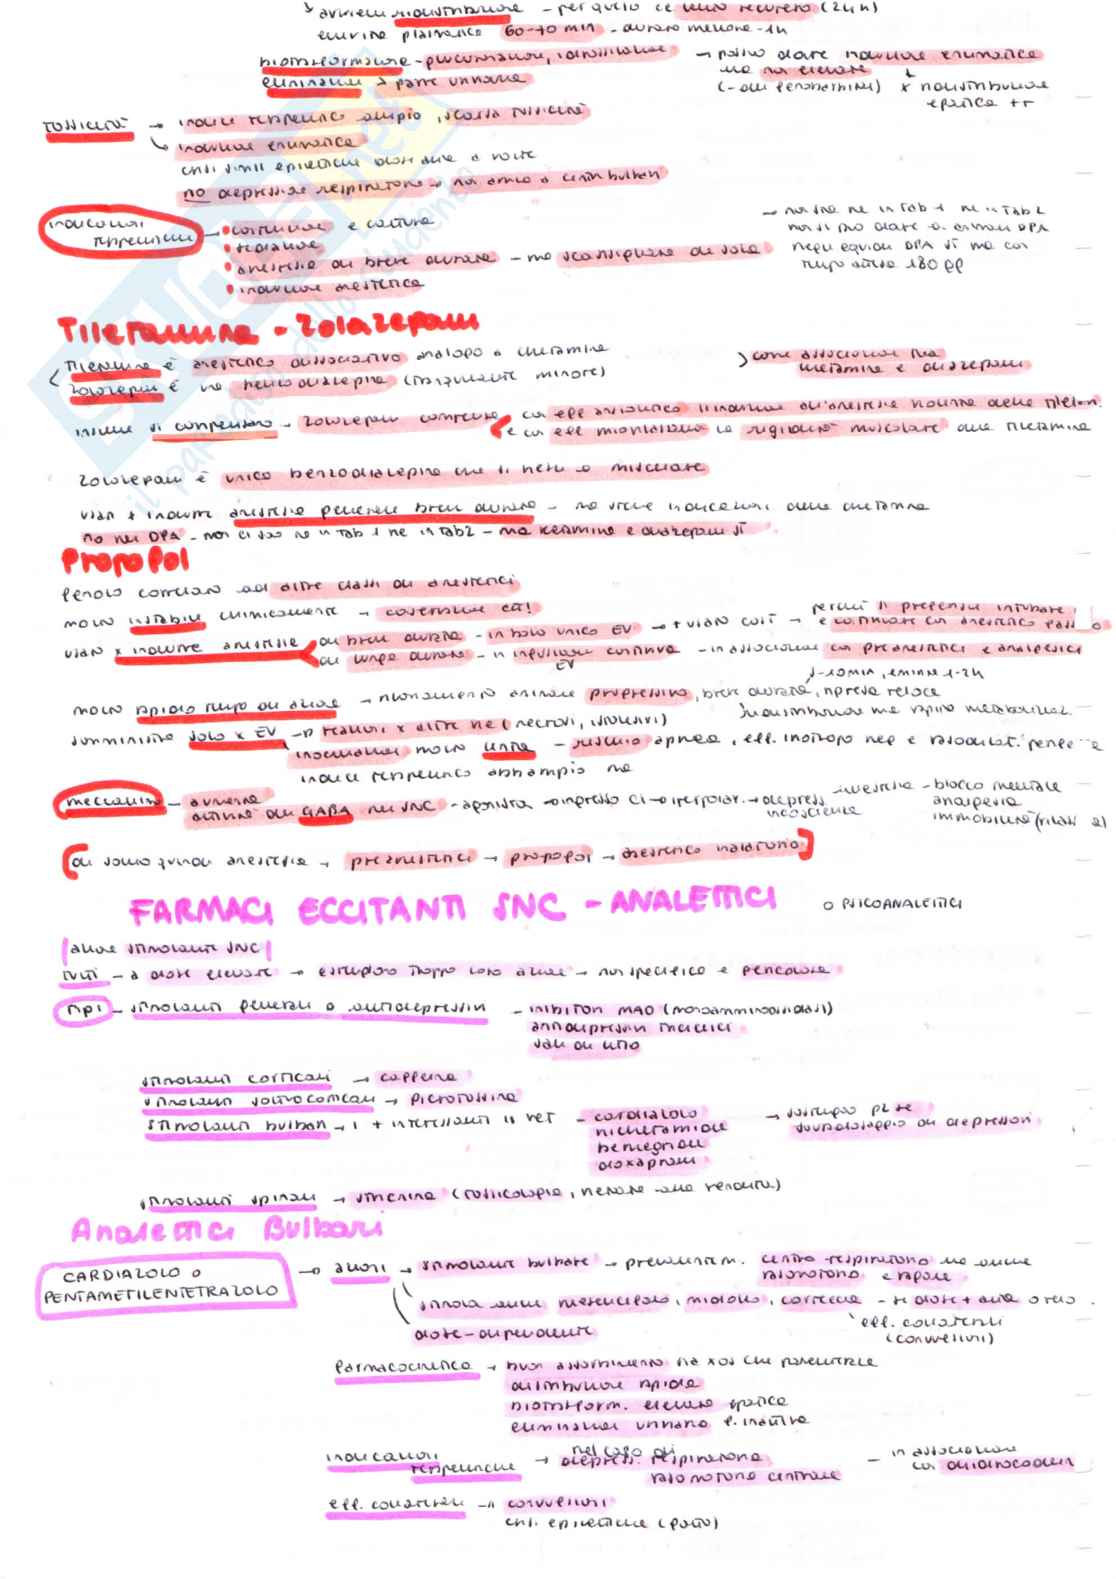 avviene ridistribuzione - per questo c'è lento recupero (24h)
emivita plasmatica 60-70 min - durata menore - 1h
biotrasformazione - glucuronazione, idrossilazione → posso dare induzione enzimatica
ma non elevate
eliminazione → parte urinaria (- dei fenobarbital) x ridistribuzione
epatica ++
tossicità → indice terapeutico ampio, scarsa tossicità
induzione enzimatica
crisi simil epilettiche dosi alte a volte
no depressione respiratoria → non arriva a centri bulbari
indicazioni terapeutiche
• contenzione e cattura
• sedazione
• anestesia di breve durata - ma sconsigliata da sola
• induzione anestetica
→ non sta né in tab 1 né in tab 2
non si può dare a animali DPA
negli equidi DPA sì ma con
tempo attesa 180 gg
Tiletamina - Zolazepam
Tiletamina è anestetico dissociativo analogo a chetamina
Zolazepam è una benzodiazepina (tranquillante minore)
come associazione tra
ketamina e diazepam
insieme si compensano - zolazepam compensa con eff ansiolitico l'induzione dell'anestesia tipica della tiletam.
e con eff miorilassante la rigidità muscolare della tiletamina
zolazepam è unico benzodiazepina che si riesce a miscelare
usati x indurre anestesia generale breve durata - ma stesse indicazioni della chetamina
no nei DPA - non ci sono né in tab 1 né in tab2 - ma ketamina e diazepam sì
Propofol
fenolo correlato ad altre classi di anestetici
molto instabile chimicamente → conservazione 4°!
usato x indurre anestesia di breve durata - in bolo unico EV → + usato così → perché si preferisce intubare
e continuare con anestetico gassoso
di lunga durata - in infusione continua EV - in associazione con preanestetici e analgesici
5-10min, emivita 1-2h
molto rapido tempo di azione → rilassamento animale progressivo, breve durata, ripresa veloce
ridistribuzione ma rapida metabolizzaz.
somministro solo x EV → reazioni x altre vie (necrosi, ustioni)
inoculazione molto lenta - rischio apnea, eff. inotropo neg e vasodilat. periferica
indice terapeutico abb ampio ma
meccanismo - aumenta attività del GABA nel SNC - agonista → ingresso Cl → iperpolar. → depress. incoscienza
anestesia - blocco mentale
analgesia
immobilità (rilass)
di solito quindi anestesia → preanestetici → propofol → anestetico inalatorio
FARMACI ECCITANTI SNC - ANALETTICI o PSICOANALETTICI
azione stimolante SNC
tutti - a dosi elevate → esempio troppo loro azione → non specifico e pericolosa
tipi - stimolanti generali o antidepressivi - inibitori MAO (monoamminoossidasi)
antidepressivi triciclici
sali di litio
stimolanti corticali → caffeina
stimolanti sottocorticali → picrotossina
stimolanti bulbari → i + interessanti in vet - cardiazolo
nicetamide
bemegride
doxapram
→ sovradosaggio di depressori
stimolanti spinali → stricnina (tossicologia, vietata alla vendita)
Analettici Bulbari
CARDIAZOLO o
PENTAMETILENTETRAZOLO
→ azioni → stimolante bulbare → prevalentem. centro respiratorio ma anche
vasomotorio e vagale
stimola anche mesencefalo, midollo, corteccia - se dose + alta
eff. collaterali
(convulsioni)
dose-dipendente
farmacocinetica → buon assorbimento sia x os che parenterale
distribuzione rapida
biotrasform. elevata epatica
eliminazione urinaria f. inattiva
indicazioni terapeutiche → nel caso di
depress. respiratoria
vasomotoria centrale
- in associazione
con
eff. collaterali → convulsioni
crisi epilettiche